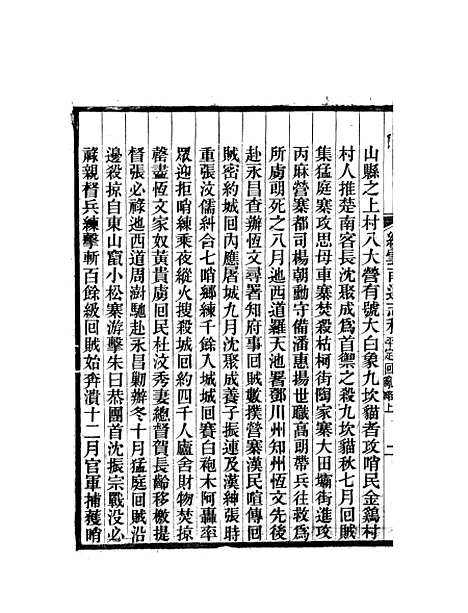 山縣之上村八大營有號大白象九坎貓者攻哨民金鷄村
村人推楚南客長沈聚成爲首禦之殺九坎貓秋七月回賊
集猛庭寨攻思母車寨焚殺枯柯街陶家寨大田壩街進攻
丙麻營寨都司楊朝勳守備潘惠揚世職高朝帶兵往救爲
所虜朝死之八月迤西道羅天池署鄧川州知州恆文先後
赴永昌查辦恆文尋署知府事回賊數撲營寨漢民喧傳回
賊密約城回內應居城九月沈聚成養子振連及漢紳張時
重張汶儒糾合七哨鄉練千餘入城城回賽白砲木阿轟率
眾迎拒哨練乘夜縱火搜殺城回約四千人廬舍財物焚掠
罄盡恆文家奴黃貴虜回民杜汶秀妻總督賀長齡移檄提
督張必祿迤西道周澍馳赴永昌勦辦冬十月猛庭回賊沿
邊殺掠自東山竄小松寨游擊朱日恭團首沈振宗戰没必
祿親督兵練擊斬百餘級回賊始奔潰十二月官軍捕獲哨
續雲南通志稿 平定回亂略上